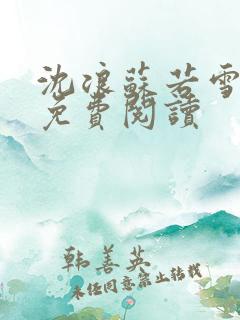 沈浪蘇若雪
免費閱讀
韩善英
未经同意禁止转载